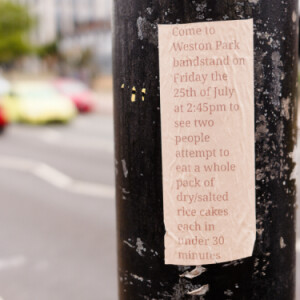 Come to
Weston Park
bandstand on
Friday the
25th of July
at 2:45pm to
see two
people
attempt to
eat a whole
pack of
dry/salted
rice cakes
each in
under 30
minutes